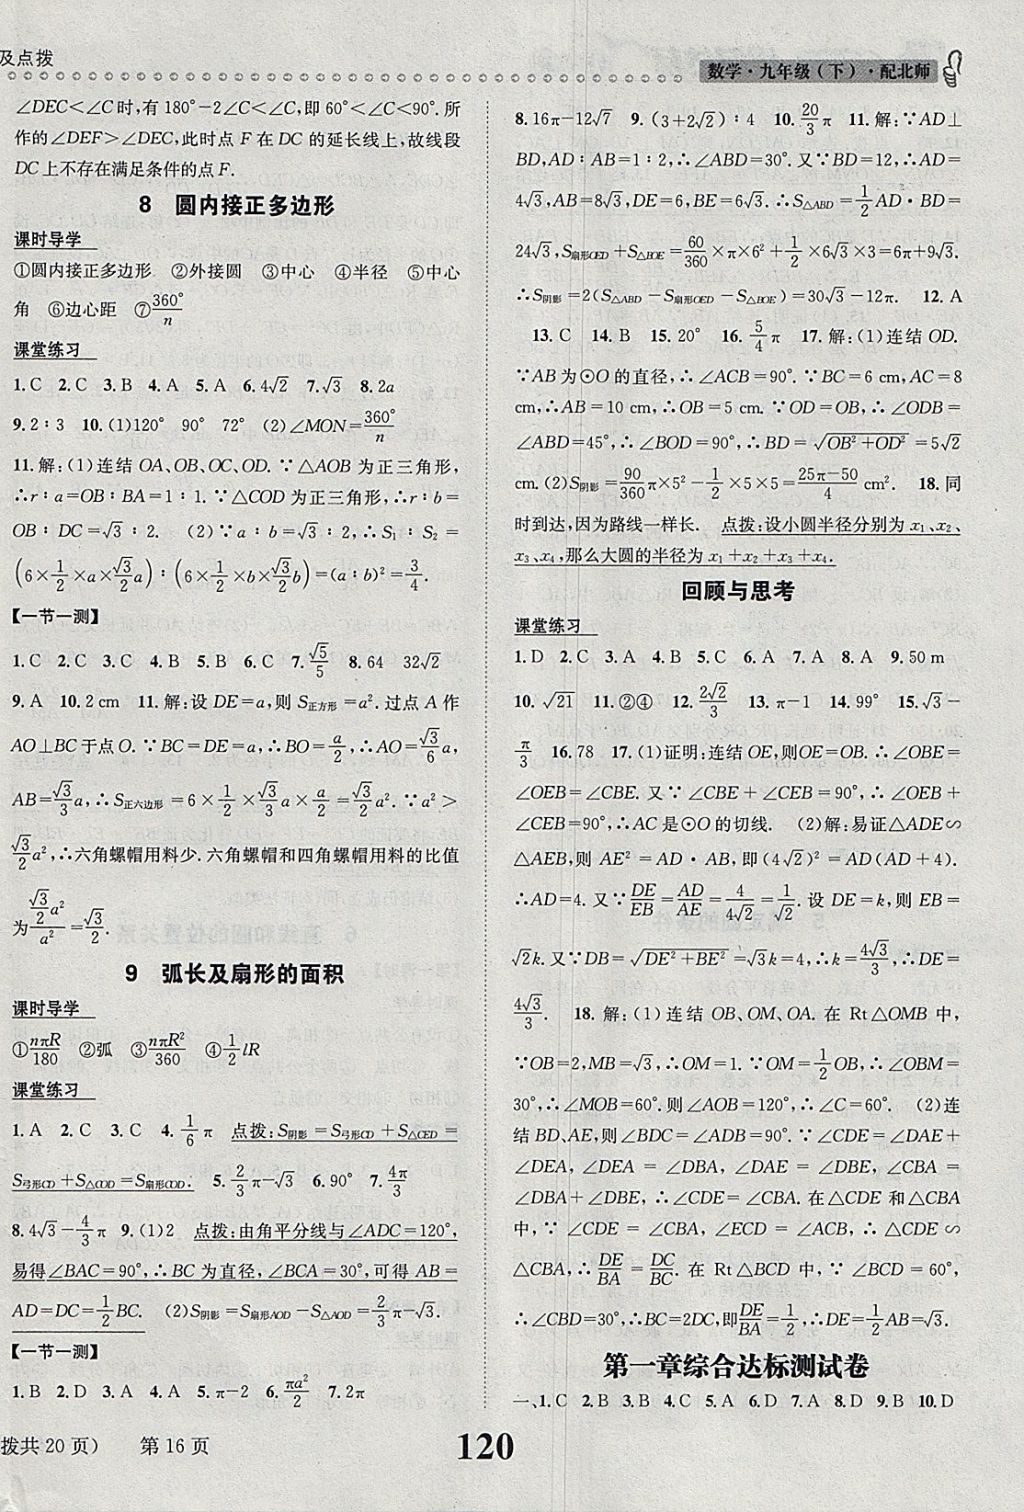 及点拨
数学·九年级(下)·配北师
∠DEC<∠C时,有180°-2∠C<∠C,即60°<∠C<90°.所
作的∠DEF>∠DEC,此时点 F 在 DC 的延长线上,故线段
DC上不存在满足条件的点F.
8 圆内接正多边形
课时导学
①圆内接正多边形 ②外接圆 ③中心 ④半径 ⑤中心
角 ⑥边心距 ⑦360°/n
课堂练习
1.C 2.C 3.B 4.A 5.A 6.4√2 7.√3 8.2a
9.2∶3 10.(1)120° 90° 72° (2)∠MON=360°/n
11.解:(1)连结 OA、OB、OC、OD.∵△AOB 为正三角形,
∴r∶a=OB∶BA=1∶1.∵△COD 为正三角形,∴r∶b=
OB∶DC=√3∶2. (2)∵a∶b=√3∶2,∴S₁∶S₂=
(6×1/2×a×√3/2a)∶(6×1/2×b×√3/2b)=(a∶b)²=3/4.
【一节一测】
1.C 2.C 3.C 4.B 5.B 6.C 7.√5/5 8.64 32√2
9.A 10.2 cm 11.解:设 DE=a,则 S正方形=a².过点 A 作
AO⊥BC于点O.∵BC=DE=a,∴BO=a/2,∴AO=√3/6a,
AB=√3/3a,∴S正六边形=6×1/2×√3/3a×a/2=√3/2a².∵a²>
√3/2a²,∴六角螺帽用料少.六角螺帽和四角螺帽用料的比值
为(√3/2a²)/a²=√3/2.
9 弧长及扇形的面积
课时导学
①nπR/180 ②弧 ③nπR²/360 ④1/2lR
课堂练习
1.A 2.C 3.C 4.1/6π 点拨:S阴影=S弓形CD+S△CED=
S弓形CD+S△COD=S扇形COD. 5.2/3π-√3 6.90° 7.4π/3
8.4√3-4/3π 9.(1)2 点拨:由角平分线与∠ADC=120°,
易得∠BAC=90°,∴BC为直径,∠BCA=30°,可得 AB=
AD=DC=1/2BC. (2)S阴影=S扇形AOD-S△AOD=2/3π-√3.
【一节一测】
1.B 2.D 3.A 4.A 5.π-2 6.πa²/2 7.2π
8.16π-12√7 9.(3+2√2)∶4 10.20/3π 11.解:∵AD⊥
BD,AD∶AB=1∶2,∴∠ABD=30°.又∵BD=12,∴AD=
4√3,AB=8√3,DE=6,BE=6√3.∴S△ABD=1/2AD·BD=
24√3,S扇形OED+S△BOE=60/360×π×6²+1/2×6√3×3=6π+9√3.
∴S阴影=2(S△ABD-S扇形OED-S△BOE)=30√3-12π. 12.A
13.C 14.B 15.20° 16.5/4π 17.解:(1)连结 OD.
∵AB为⊙O的直径,∴∠ACB=90°.∵BC=6 cm,AC=8
cm,∴AB=10 cm,∴OB=5 cm.∵OD=OB,∴∠ODB=
∠ABD=45°,∴∠BOD=90°,∴BD=√(OB²+OD²)=5√2
cm.(2)S阴影=90/360π×5²-1/2×5×5=(25π-50)/4 cm². 18.同
时到达,因为路线一样长. 点拨:设小圆半径分别为 x₁、x₂、
x₃、x₄,那么大圆的半径为 x₁+x₂+x₃+x₄.
回顾与思考
课堂练习
1.D 2.C 3.A 4.B 5.C 6.A 7.A 8.A 9.50 m
10.√21 11.②④ 12.2√2/3 13.π-1 14.99° 15.√3-
π/3 16.78 17.(1)证明:连结OE,则OE=OB.∴∠OBE=
∠OEB=∠CBE.又∵∠CBE+∠CEB=90°,∴∠OEB+
∠CEB=90°,∴AC是⊙O的切线. (2)解:易证△ADE∽
△AEB,则 AE²=AD×AB,即(4√2)²=AD(AD+4).
∴AD=4.又∵DE/EB=AD/AE=4/4√2=1/√2.设 DE=k,则 EB=
√2k.又∵DB=√(DE²+BE²)=√3k=4,∴k=4√3/3,∴DE=
4√3/3. 18.解:(1)连结 OB、OM、OA.在 Rt△OMB 中,
∵OB=2,MB=√3,∴OM=1.∵OM=1/2OB,∴∠OBM=
30°,∴∠MOB=60°.则∠AOB=120°,∴∠C=60°. (2)连
结 BD、AE,则∠BDC=∠ADB=90°.∵∠CDE=∠DAE+
∠DEA,∠DEA=∠DBA,∠DAE=∠DBE,∠CBA=
∠DBA+∠DBE,∴∠CDE=∠CBA.在△CDE 和△CBA
中,∵∠CDE=∠CBA,∠ECD=∠ACB,∴△CDE∽
△CBA,∴DE/BA=DC/BC.在 Rt△BCD 中,∵∠BCD=60°,
∴∠CBD=30°,∴BC=2DC,即DE/BA=1/2,∴AB=√3.
第一章综合达标测试卷
一、1.C 2.B 3.B 4.D 5.C 6.A 7.A 8.D 9.B 10.D
拨共 20 页) 第 16 页
120